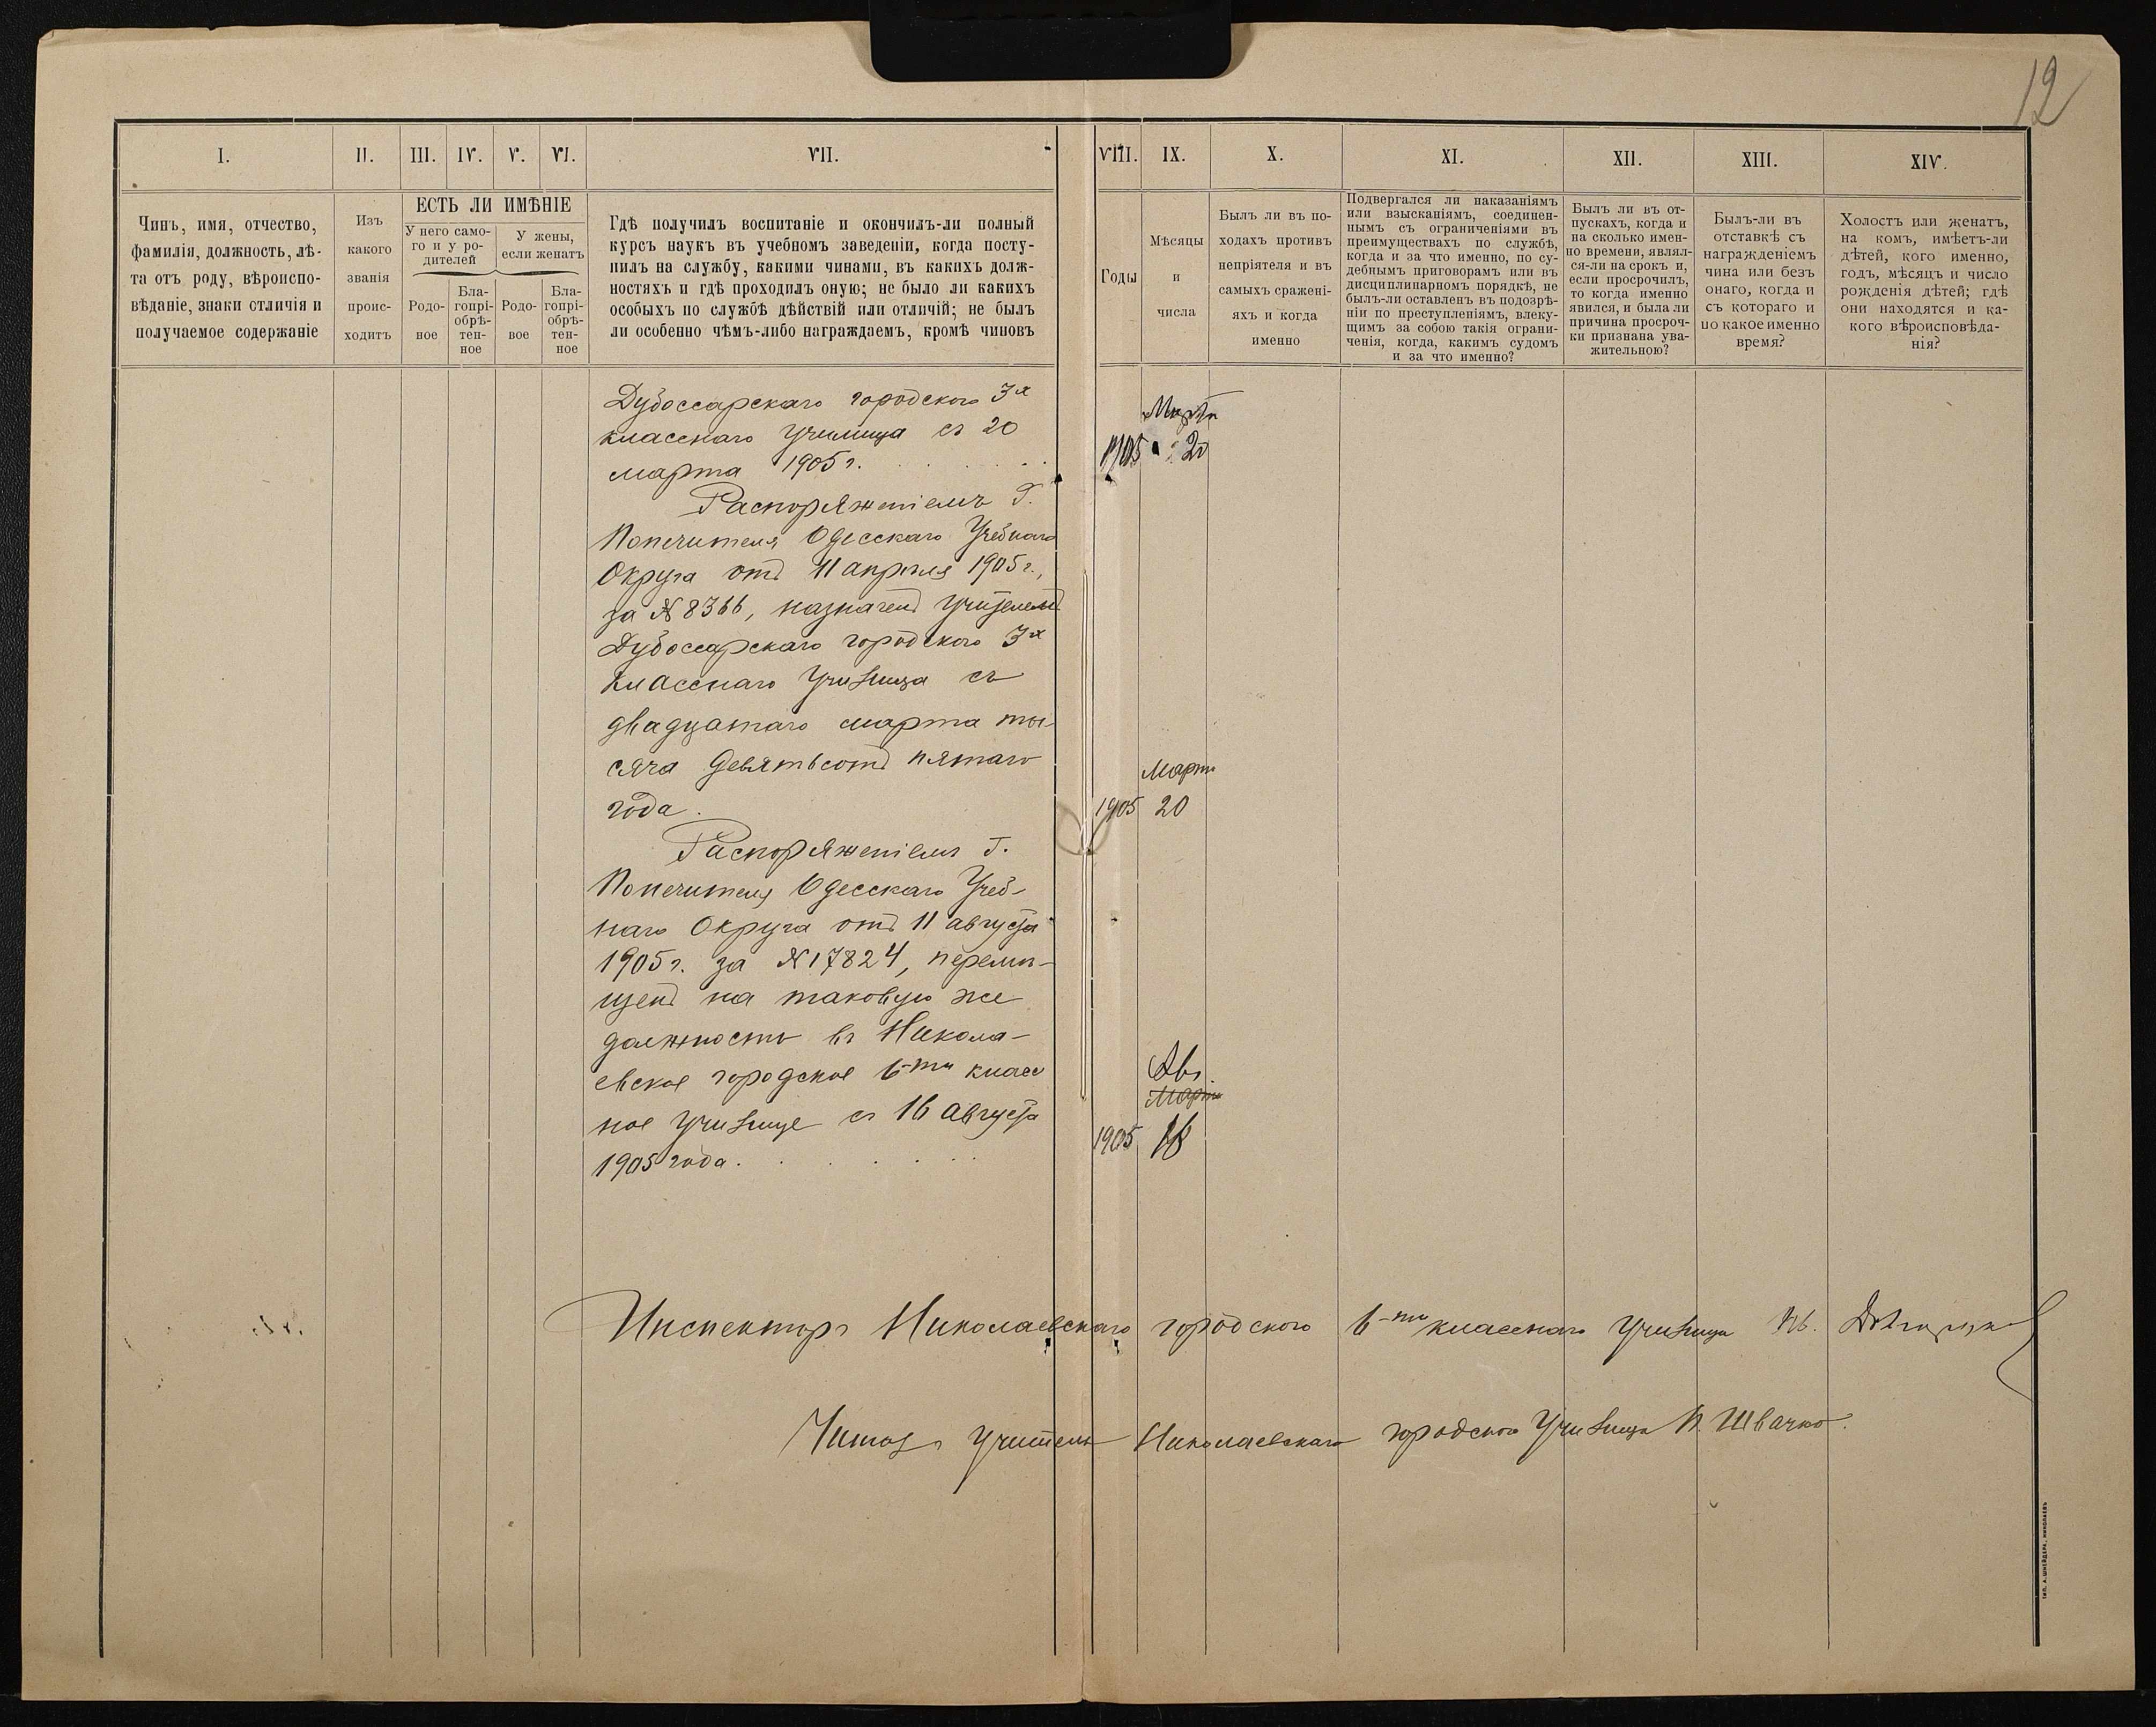 12
I. II. III. IV. V. VI. VII. VIII. IX. X. XI. XII. XIII. XIV.
Чинъ, имя, отчество,
фамилія, должность, лѣ-
та отъ роду, вѣроиспо-
вѣданіе, знаки отличія и
получаемое содержаніе
Изъ
какого
званія
проис-
ходитъ
ЕСТЬ ЛИ ИМѢНІЕ
У него само-
го и у ро-
дителей
У жены,
если женатъ
Родо-
вое
Бла-
гопрі-
обрѣ-
тен-
ное
Родо-
вое
Бла-
гопрі-
обрѣ-
тен-
ное
Гдѣ получилъ воспитаніе и окончилъ-ли полный
курсъ наукъ въ учебномъ заведеніи, когда посту-
пилъ на службу, какими чинами, въ какихъ долж-
ностяхъ и гдѣ проходилъ оную; не было ли какихъ
особыхъ по службѣ дѣйствій или отличій; не былъ
ли особенно чѣмъ-либо награждаемъ, кромѣ чиновъ
Годы
Мѣсяцы
и
числа
Былъ ли въ по-
ходахъ противъ
непріятеля и въ
самыхъ сражені-
яхъ и когда
именно
Подвергался ли наказаніямъ
или взысканіямъ, соединен-
нымъ съ ограниченіями въ
преимуществахъ по службѣ,
когда и за что именно, по су-
дебнымъ приговорамъ или въ
дисциплинарномъ порядкѣ, не
былъ-ли оставленъ въ подозрѣ-
ніи по преступленіямъ, влеку-
щимъ за собою такія ограни-
ченія, когда, какимъ судомъ
и за что именно?
Былъ ли въ от-
пускахъ, когда и
на сколько имен-
но времени, являл-
ся-ли на срокъ и,
если просрочилъ,
то когда именно
явился, и была ли
причина просроч-
ки признана ува-
жительною?
Былъ-ли въ
отставкѣ съ
награжденіемъ
чина или безъ
онаго, когда и
съ котораго и
по какое именно
время?
Холостъ или женатъ,
на комъ, имѣетъ-ли
дѣтей, кого именно,
годъ, мѣсяцъ и число
рожденія дѣтей; гдѣ
они находятся и ка-
кого вѣроисповѣда-
нія?
Дубоссарскаго городского 3х
класснаго училища съ 20
марта 1905 г.
Марта
1905 20
Распоряженіемъ Г.
Попечителя Одесскаго Учебнаго
Округа отъ 11 апрѣля 1905 г.,
за № 8366, назначенъ учителемъ
Дубоссарскаго городского 3х
класснаго училища съ
двадцатаго марта ты-
сяча девятьсотъ пятаго
года.
Марта
1905 20
Распоряженіемъ Г.
Попечителя Одесскаго Учеб-
наго Округа отъ 11 августа
1905 г. за № 17824, перемѣ-
щенъ на таковую же
должность въ Никола-
евское городское 6-ти класс
ное училище съ 16 августа
1905 года.
Авг.
Марта
1905
Инспекторъ Николаевскаго городского 6-ти класснаго училища
учитель Николаевскаго городского училища П. Швачко.
ТИП. А. ШНЕЙДЕРА, НИКОЛАЕВЪ